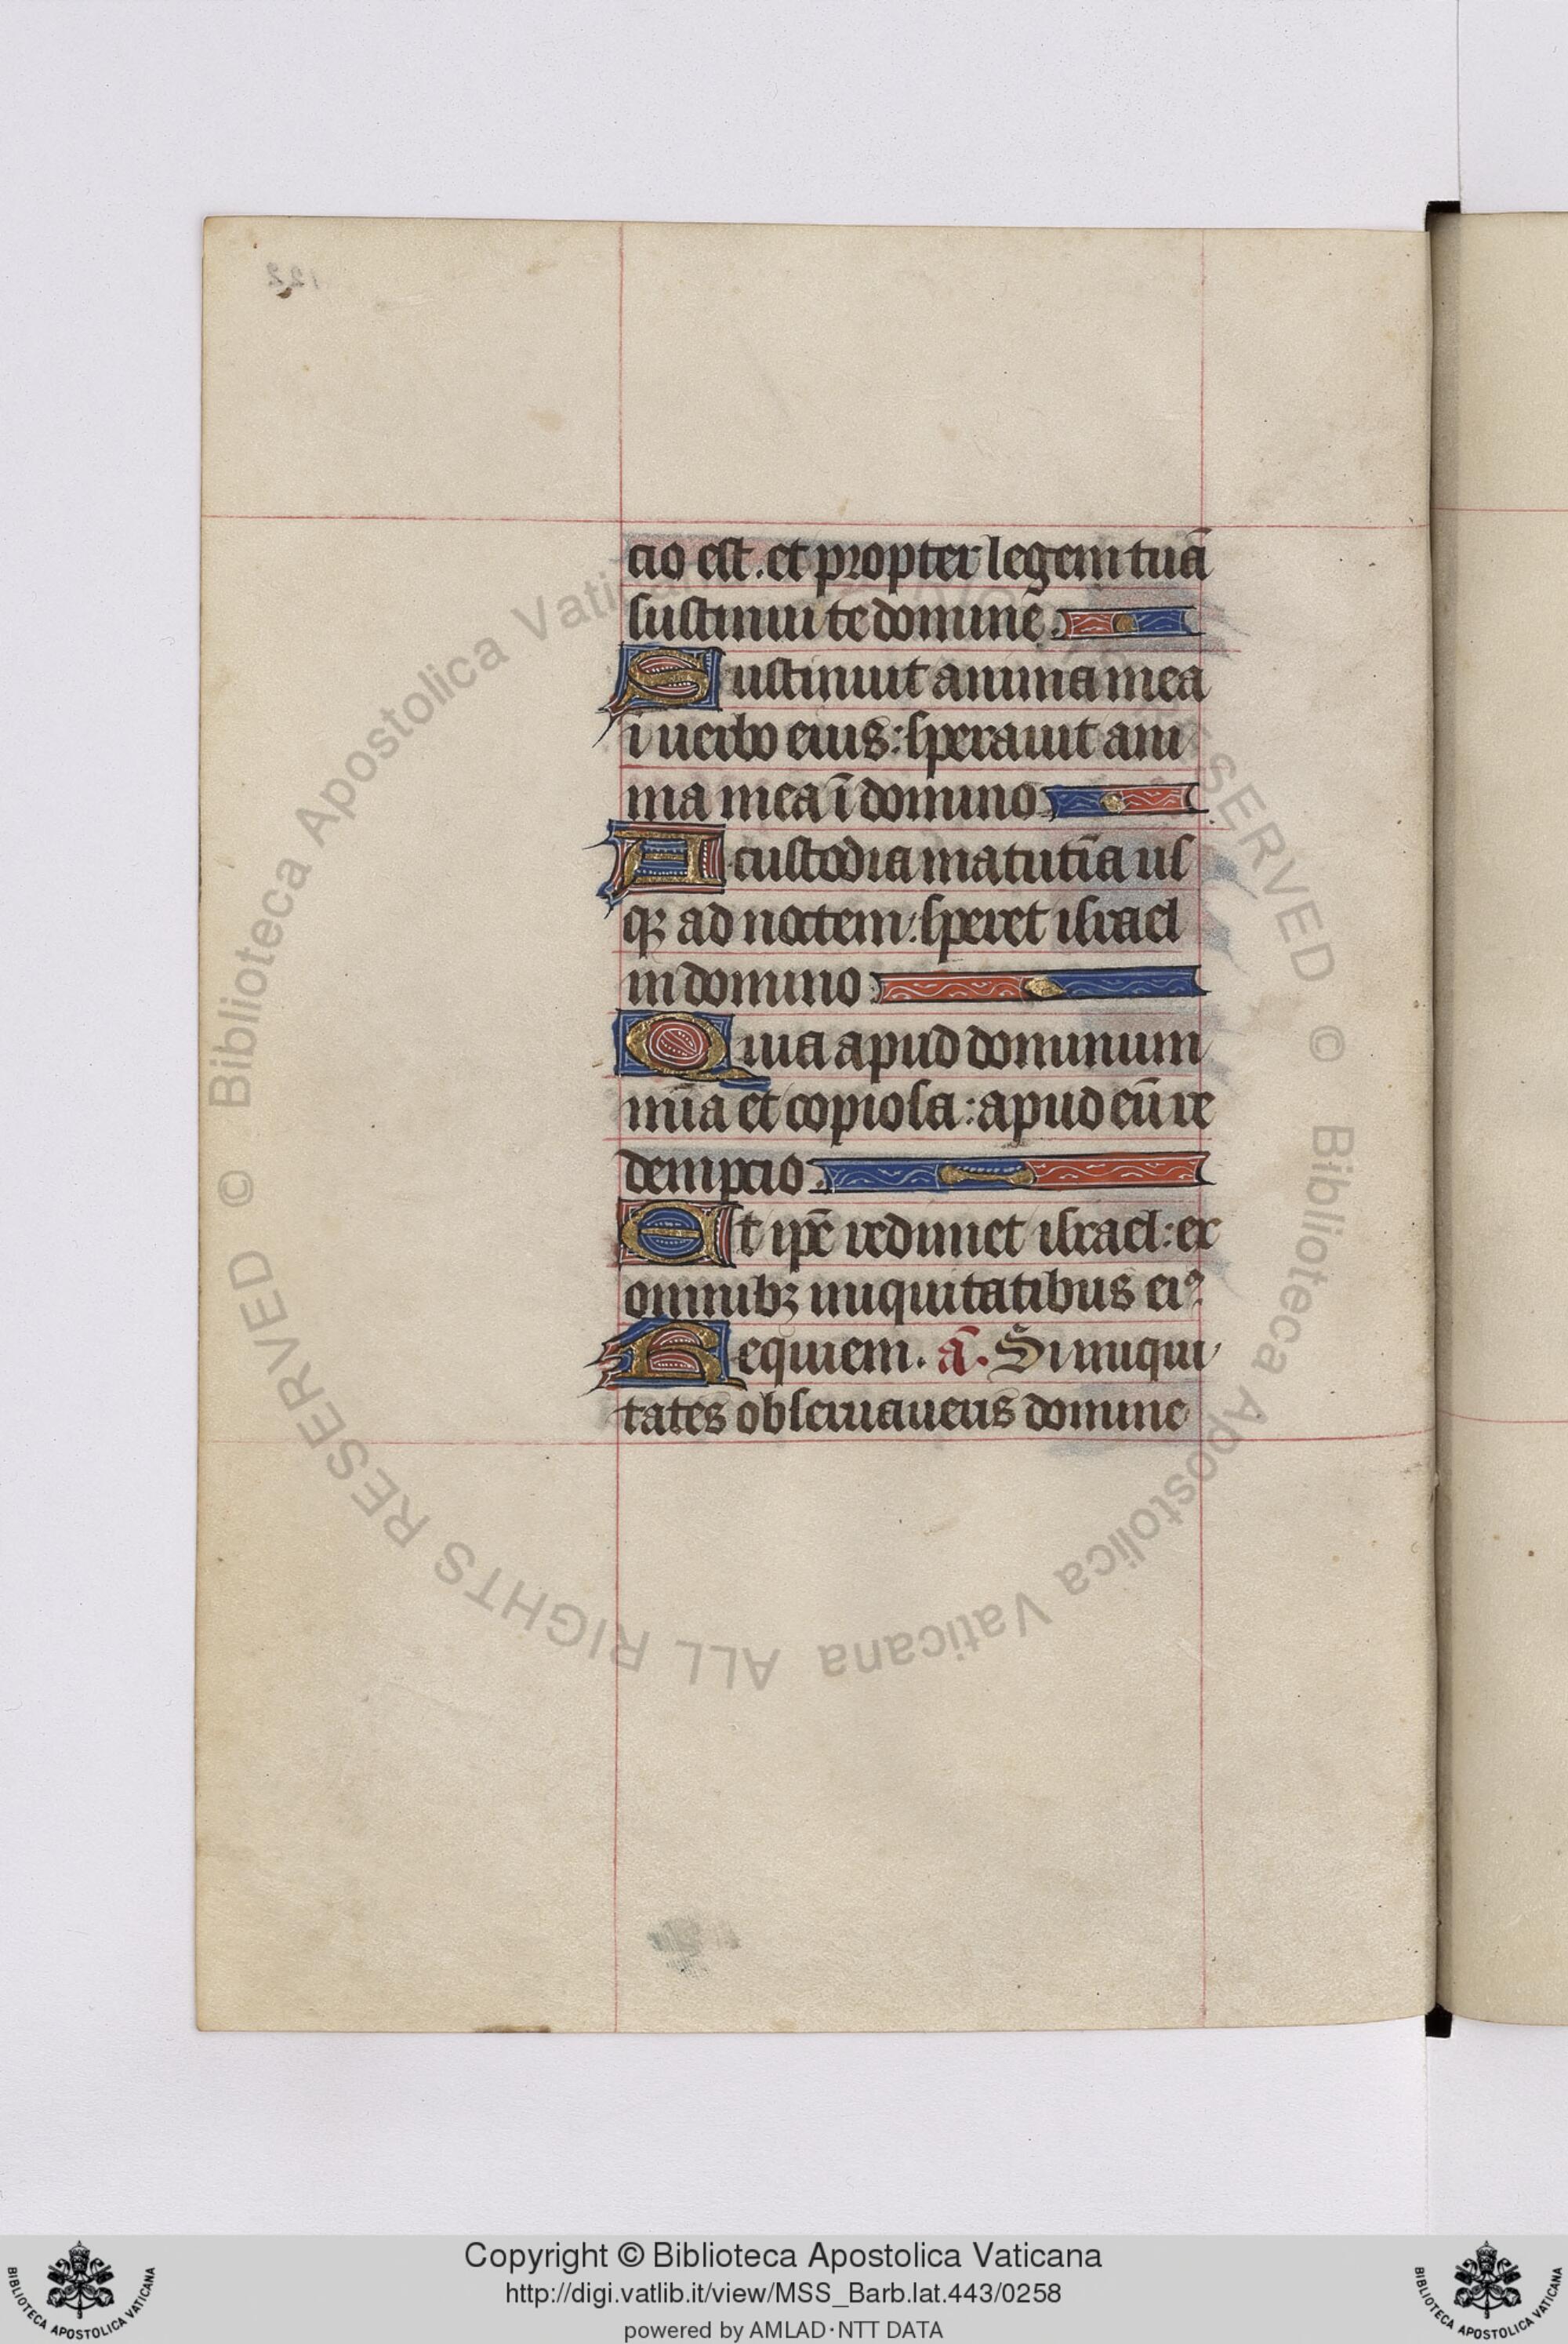 cio est. et propter legem tuā
sustinui te domine.
Sustinuit anima mea
ī uerbo eius: sperauit ani
ma mea ī domino
A custodia matutīa us
qꝫ ad noctem. speret israel
in domino
Quia apud dominum
mīa et copiosa: apud eū re
dempcio.
Et ipē redimet israel: ex
omnibꝫ iniquitatibus eiꝰ
Requiem. a͂. Si iniqui
tates obseruaueris domine
© Biblioteca Apostolica Vaticana ALL RIGHTS RESERVED
Copyright © Biblioteca Apostolica Vaticana
http://digi.vatlib.it/view/MSS_Barb.lat.443/0258
powered by AMLAD·NTT DATA
BIBLIOTECA APOSTOLICA VATICANA
BIBLIOTECA APOSTOLICA VATICANA